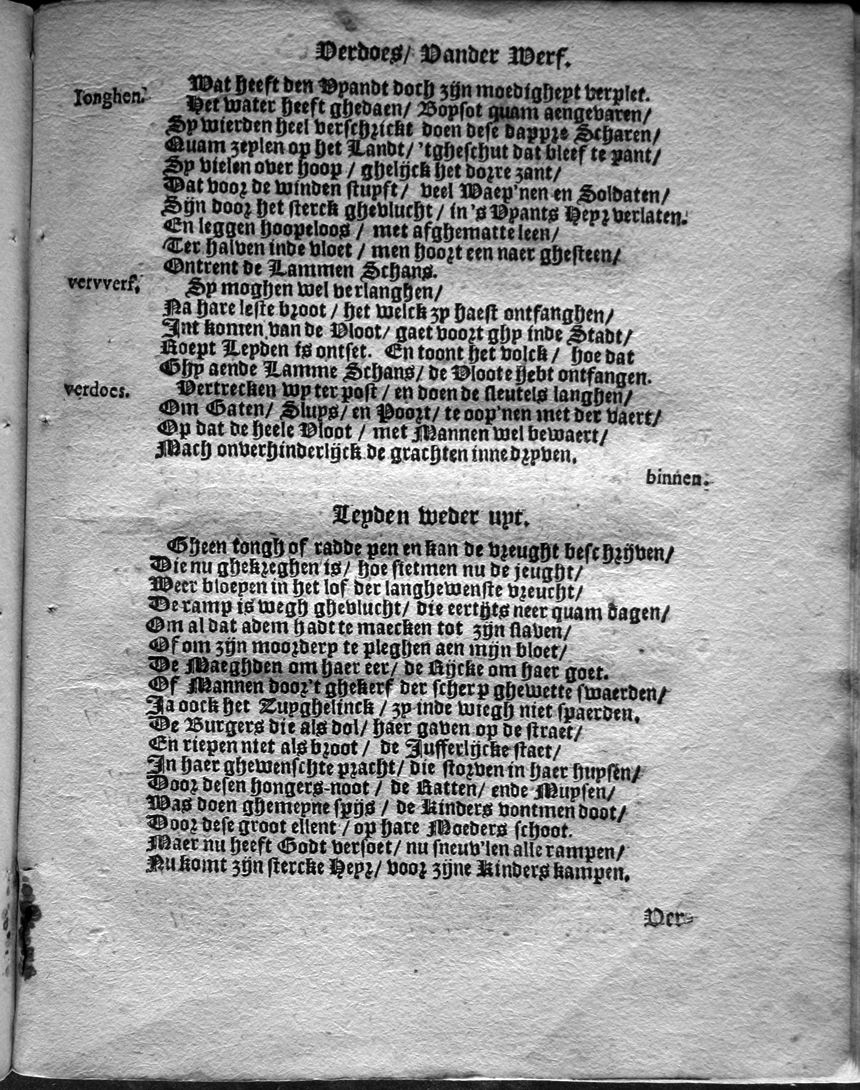 Verdoes/ Vander Werf.
Ionghen. Wat heeft den Vyandt doch zijn moedigheyt verplet.
Het water heeft ghedaen/ Boysot quam aengevaren/
Sy wierden heel verschrickt doen dese dappre Scharen/
Quam zeylen op het Landt/ 'tgheschut dat bleef te pant/
Sy vielen over hoop / ghelijck het dorre zant/
Dat voor de winden stuyft/ veel Waep'nen en Soldaten/
Sijn door het sterck ghevlucht/ in's Vyants Heyr verlaten.
En leggen hoopeloos / met afghematte leen/
Ter halven inde vloet / men hoort een naer ghesteen/
Ontrent de Lammen Schans.
vervverf. Sy moghen wel verlanghen/
Na hare leste broot / het welck zy haest ontfanghen/
Int komen van de Vloot/ gaet voort ghy inde Stadt/
Roept Leyden is ontset. En toont het volck/ hoe dat
Ghy aende Lamme Schans/ de Vloote hebt ontfangen.
verdoes. Vertrecken wy ter post / en doen de sleutels langhen/
Om Gaten/ Sluys/ en Poort/ te oop'nen met der vaert/
Op dat de heele Vloot / met Mannen wel bewaert/
Mach onverhinderlijck de grachten inne dryven.
binnen.
Leyden weder uyt.
Gheen tongh of radde pen en kan de vreught beschrijven/
Die nu ghekreghen is/ hoe sietmen nu de jeught/
Weer bloeyen in het lof der langhewenste vreucht/
De ramp is wegh ghevlucht/ die eertijts neer quam dagen/
Om al dat adem hadt te maecken tot zijn slaven/
Of om zijn moordery te pleghen aen mijn bloet/
De Maeghden om haer eer/ de Rijcke om haer goet.
Of Mannen door't ghekerf der scherp ghewette swaerden/
Ja oock het Zuyghelinck / zy inde wiegh niet spaerden.
De Burgers die als dol/ haer gaven op de straet/
En riepen niet als broot / de Jufferlijcke staet/
In haer ghewenschte pracht/ die storven in haer huysen/
Door desen hongers-noot / de Katten/ ende Muysen/
Was doen ghemeyne spijs / de Kinders vontmen doot/
Door dese groot ellent / op hare Moeders schoot.
Maer nu heeft Godt versoet/ nu sneuv'len alle rampen/
Nu komt zijn stercke Heyr/ voor zijne Kinders kampen.
Ver-